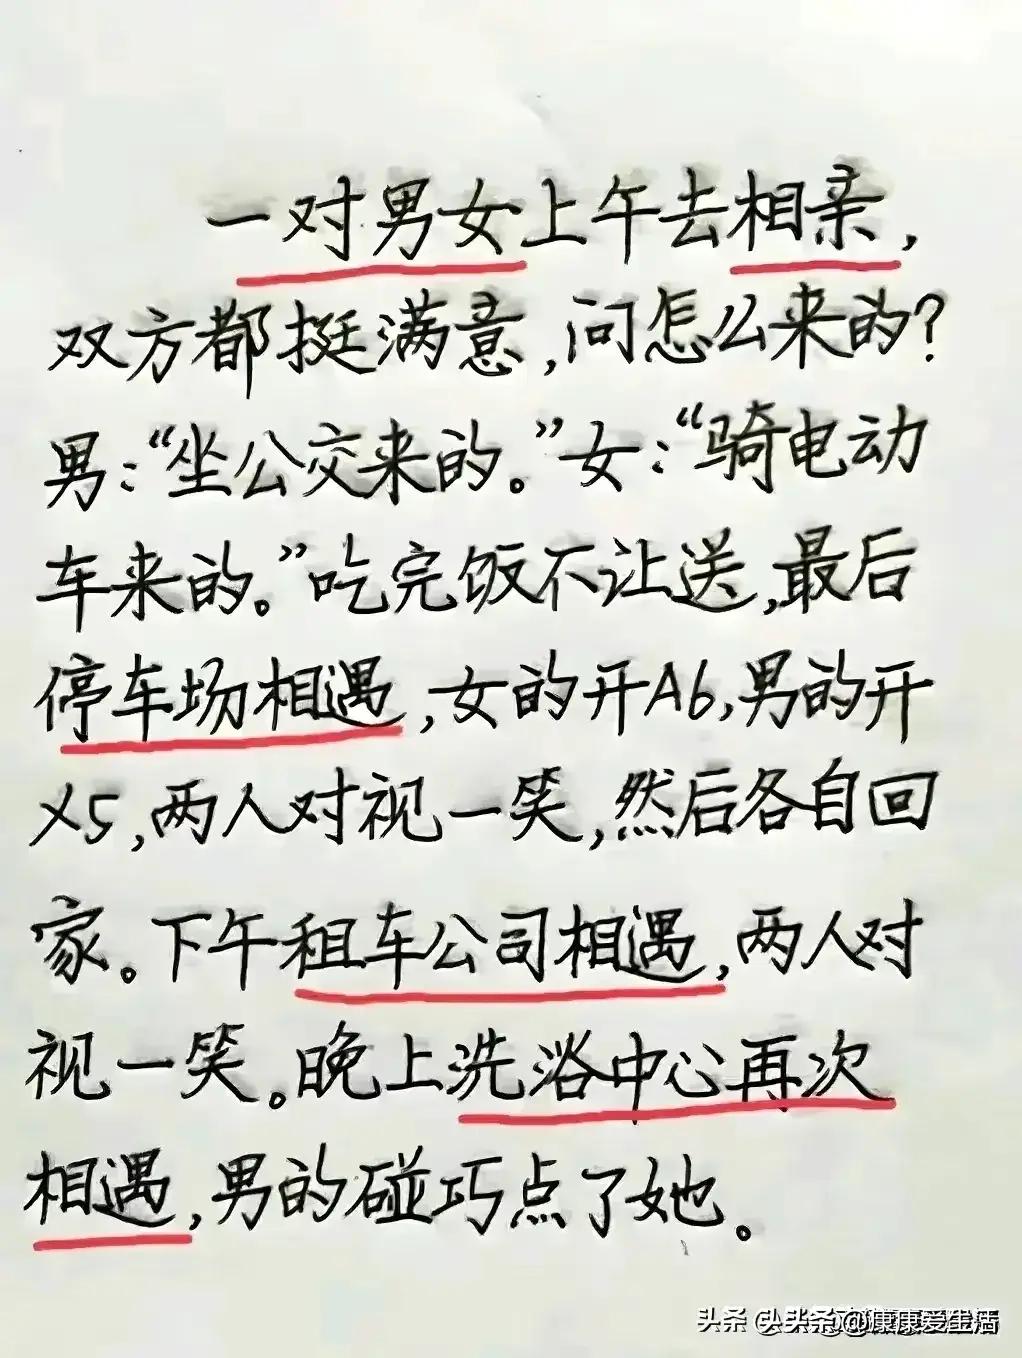 一对男女上午去相亲,
双方都挺满意,问怎么来的?
男:“坐公交来的。”女:“骑电动
车来的。”吃完饭不让送,最后
停车场相遇,女的开A6,男的开
X5,两人对视一笑,然后各自回
家。下午租车公司相遇,两人对
视一笑。晚上洗浴中心再次
相遇,男的碰巧点了她。
头条 @康康爱生活